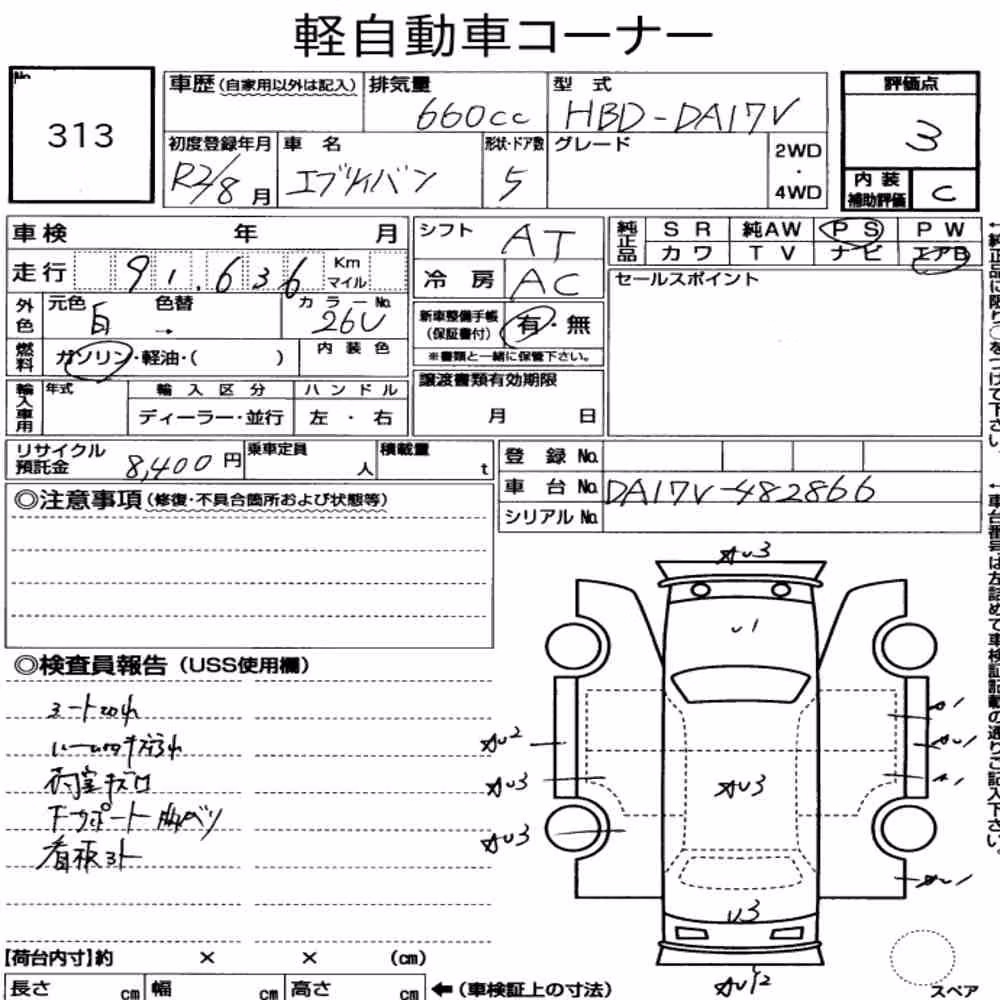 軽自動車コーナー
No.
313
車歴(自家用以外は記入)
排気量
660cc
型 式
HBD-DA17V
評価点
3
初度登録年月
R2/8月
車 名
エブリイバン
形状・ドア数
5
グレード
2WD
・
4WD
内 装
補助評価
C
車検 年 月
走行 91,636 Km
マイル
外色
元色 白
色替 →
カラーNo.
26U
燃料
ガソリン・軽油・( )
内 装 色
輸入車用
年式
輸 入 区 分
ディーラー・並行
ハ ン ド ル
左 ・ 右
シフト AT
冷 房 AC
新車整備手帳
(保証書付)
有・無
※書類と一緒に保管下さい。
譲渡書類有効期限
月 日
純正品
S R 純AW P S P W
カ ワ T V ナ ビ エアB
セールスポイント
リサイクル
預託金
8,400 円
乗車定員
人
積載量
t
登 録 No.
車 台 No. DA17V-482866
シリアル No.
◎注意事項(修復・不具合箇所および状態等)
◎検査員報告(USS使用欄)
シートコゲ穴
荷室キズ凹
看板アト
U3
U1
U2
U3
U3
U3
U3
【荷台内寸】約 × × (cm)
長さ cm 幅 cm 高さ cm
←(車検証上の寸法)
スペア
←純正品に限り○をつけて下さい。
←車台番号は左詰めで車検証記載の通りご記入下さい。